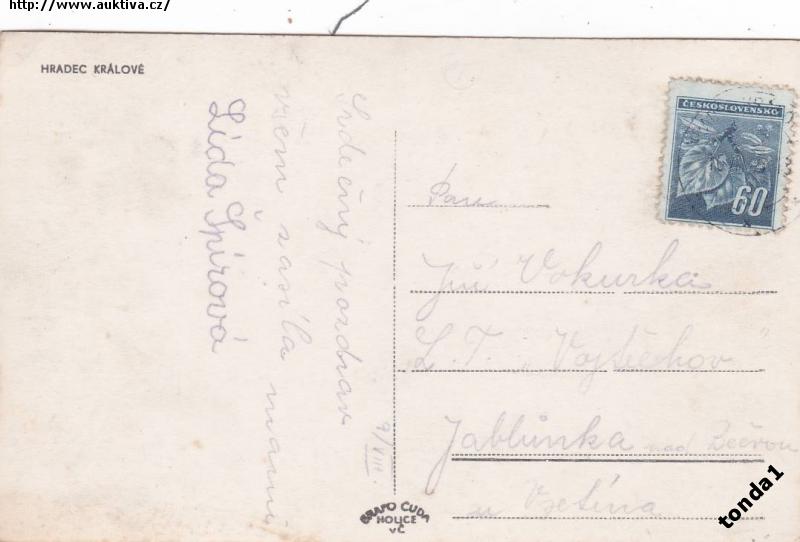 http://www.auktiva.cz/
HRADEC KRÁLOVÉ
ČESKOSLOVENSKO
60
Srdečný pozdrav
všem zasílá mami
Lída Špírová
9/VIII.
Pan
Jiří Vokurka
L. T. „Vojtěchov"
Jablůnka nad Bečvou
u Vsetína
GRAFO ČUDA
HOLICE
v Č
tonda1